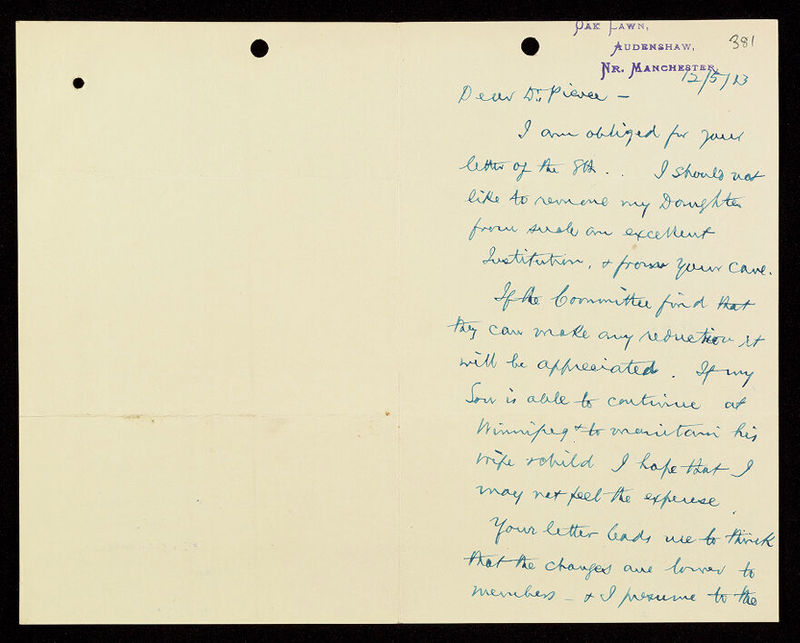 Oak Lawn,
Audenshaw,
Nr. Manchester.
381
12/5/13
Dear Dr. Pierce —
I am obliged for your
letter of the 8th . . I should not
like to remove my Daughter
from such an excellent
Institution, & from your care.
If the Committee find that
they can make any reduction it
will be appreciated. If my
Son is able to continue at
Winnipeg & to maintain his
wife & child I hope that I
may not feel the expense.
Your letter leads me to think
that the charges are lower to
members — & I presume to the